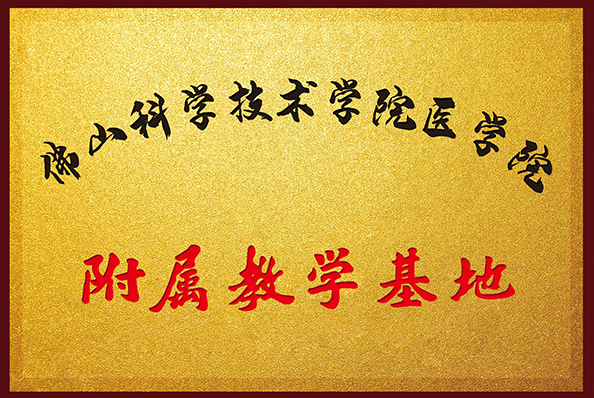 佛山科学技术学院医学院
附属教学基地